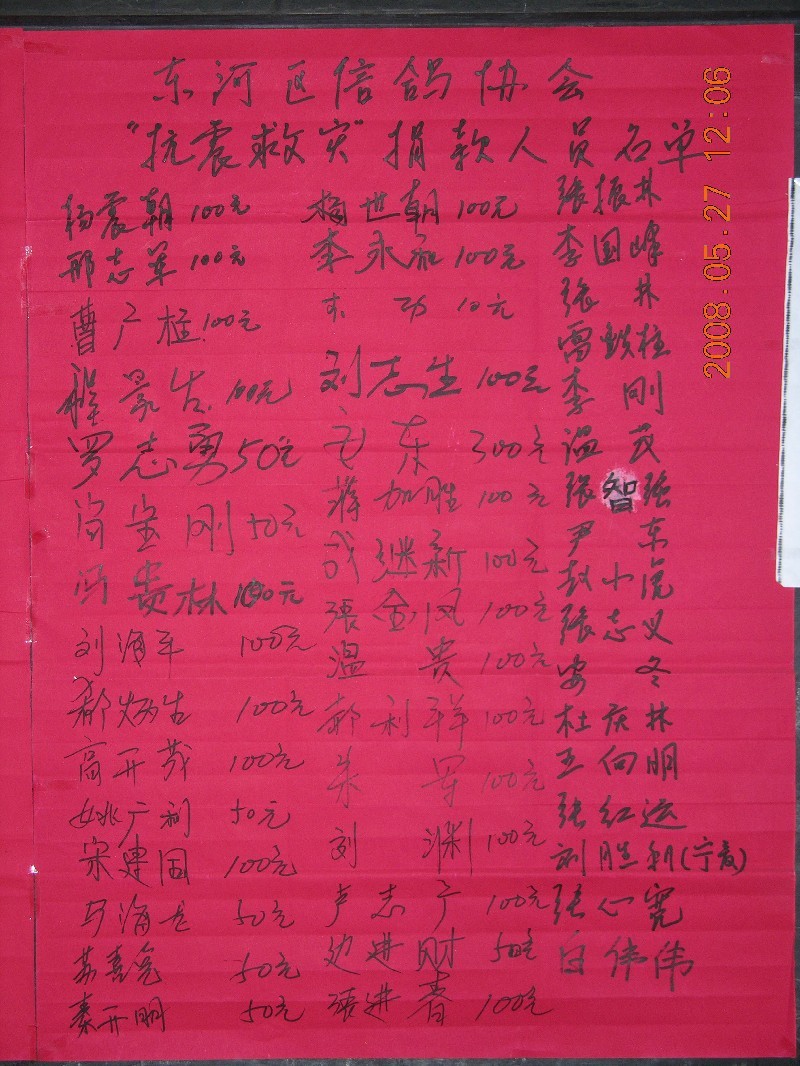 东河区信鸽协会
"抗震救灾"捐款人员名单
杨震朝 100元
邢志军 100元
曹广柱 100元
程景吉 100元
罗志勇 50元
尚宝刚 50元
冯贵林 100元
刘海军 100元
郝炳吉 100元
高开茂 100元
姚广利 50元
宋建国 100元
马海龙 50元
苏喜全 50元
秦开明 50元
杨世朝 100元
李永 100元
功 10元
刘志生 100元
毛东 300元
蒋加胜 100元
成继新 100元
张金凤 100元
温贵 100元
郝利祥 100元
朱军 100元
刘渊 100元
卢志广 100元
边进财 50元
张进青 100元
张振林
李国峰
张林
雷铁柱
李刚
温茂
张智强
尹东
赵小虎
张志义
安冬
杜庆林
王向明
张红运
刘胜利(宁夏)
张心宽
白伟伟
2008.05.27 12:06